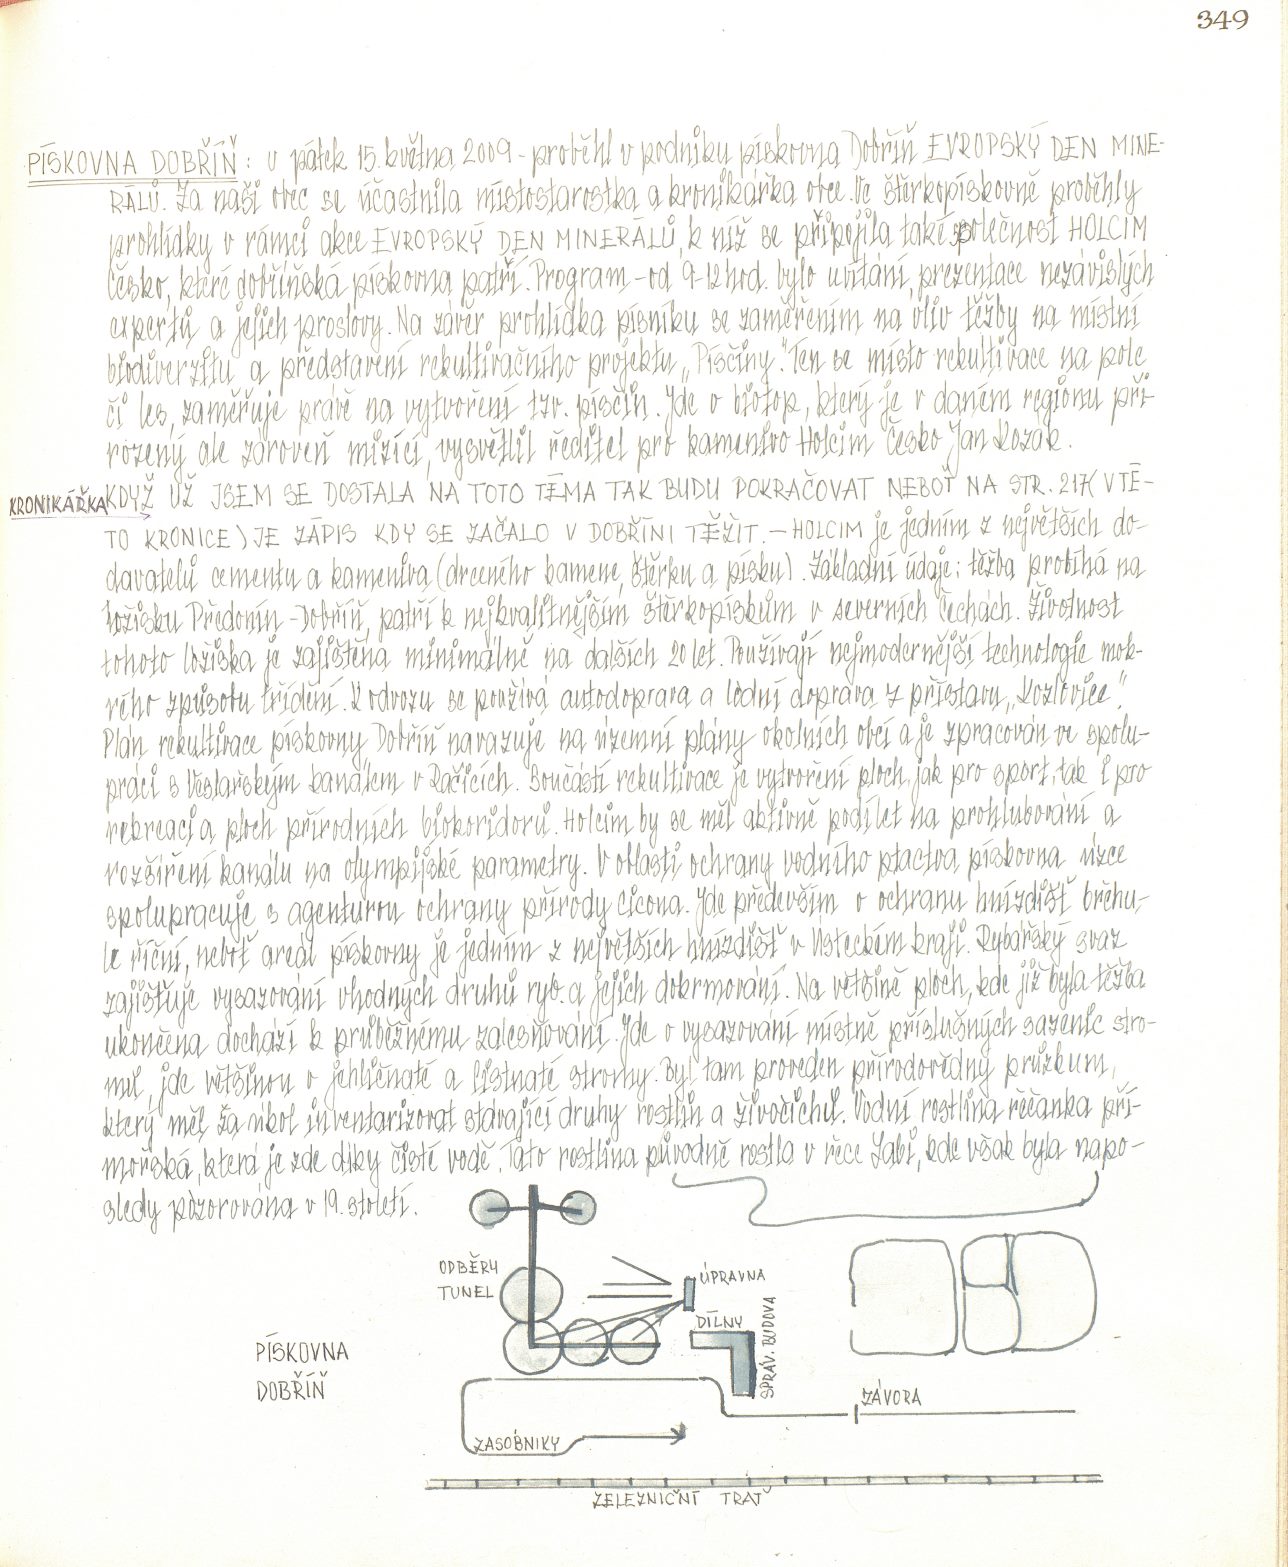 349
PÍSKOVNA DOBŘÍŇ: v pátek 15. května 2009 - proběhl v podniku pískovna Dobříň EVROPSKÝ DEN MINE-
RÁLŮ. Za naší obec se účastnila místostarostka a kronikářka obce. Ve štěrkopískovně proběhly
prohlídky v rámci akce EVROPSKÝ DEN MINERÁLŮ, k níž se připojila také společnost HOLCIM
Česko, které dobříňská pískovna patří. Program - od 9-12 hod. bylo uvítání, prezentace nezávislých
expertů a jejich proslovy. Na závěr prohlídka písníku se zaměřením na vliv těžby na místní
biodiverzitu a představení rekultivačního projektu „Písčiny". Ten se místo rekultivace na pole
či les, zaměřuje právě na vytvoření tzv. písčin. Jde o biotop, který je v daném regionu při-
rozený ale zároveň mizící, vysvětlil ředitel pro kamenivo Holcim Česko Jan Kozák.
KRONIKÁŘKA KDYŽ UŽ JSEM SE DOSTALA NA TOTO TÉMA TAK BUDU POKRAČOVAT NEBOŤ NA STR. 217 (V TÉ-
TO KRONICE) JE ZÁPIS KDY SE ZAČALO V DOBŘÍNI TĚŽIT. - HOLCIM je jedním z největších do-
davatelů cementu a kameniva (drceného kamene, štěrku a písku). Základní údaje: těžba probíhá na
ložisku Předonín - Dobříň, patří k nejkvalitnějším štěrkopískům v severních Čechách. Životnost
tohoto ložiska je zajištěna minimálně na dalších 20 let. Používají nejmodernější technologie mok-
rého způsobu třídění. K odvozu se používá autodoprava a lodní doprava z přístavu „Kozlovice".
Plán rekultivace pískovny Dobříň navazuje na územní plány okolních obcí a je zpracován ve spolu-
práci s Veslařským kanálem v Račicích. Součástí rekultivace je vytvoření ploch, jak pro sport, tak i pro
rekreaci a ploch přírodních biokoridorů. Holcim by se měl aktivně podílet na prohlubování a
rozšíření kanálu na olympijské parametry. V oblasti ochrany vodního ptactva pískovna úzce
spolupracuje s agenturou ochrany přírody Cicona. Jde především o ochranu hnízdišť břehu-
le říční, neboť areál pískovny je jedním z největších hnízdišť v Ústeckém kraji. Rybářský svaz
zajišťuje vysazování vhodných druhů ryb a jejich dokrmování. Na většině ploch, kde již byla těžba
ukončena dochází k průběžnému zalesňování. Jde o vysazování místně příslušných sazenic stro-
mů, jde většinou o jehličnaté a listnaté stromy. Byl tam proveden přírodovědný průzkum,
který měl za úkol inventarizovat stávající druhy rostlin a živočichů. Vodní rostlina řečanka pří-
mořská, která je zde díky čisté vodě. Tato rostlina původně rostla v řece Labi, kde však byla napo-
sledy pozorována v 19. století.
ODBĚRY
TUNEL
ÚPRAVNA
DÍLNY
SPRÁV. BUDOVA
PÍSKOVNA
DOBŘÍŇ
ZÁVORA
ZÁSOBNIKY
ŽELEZNIČNÍ TRAŤ